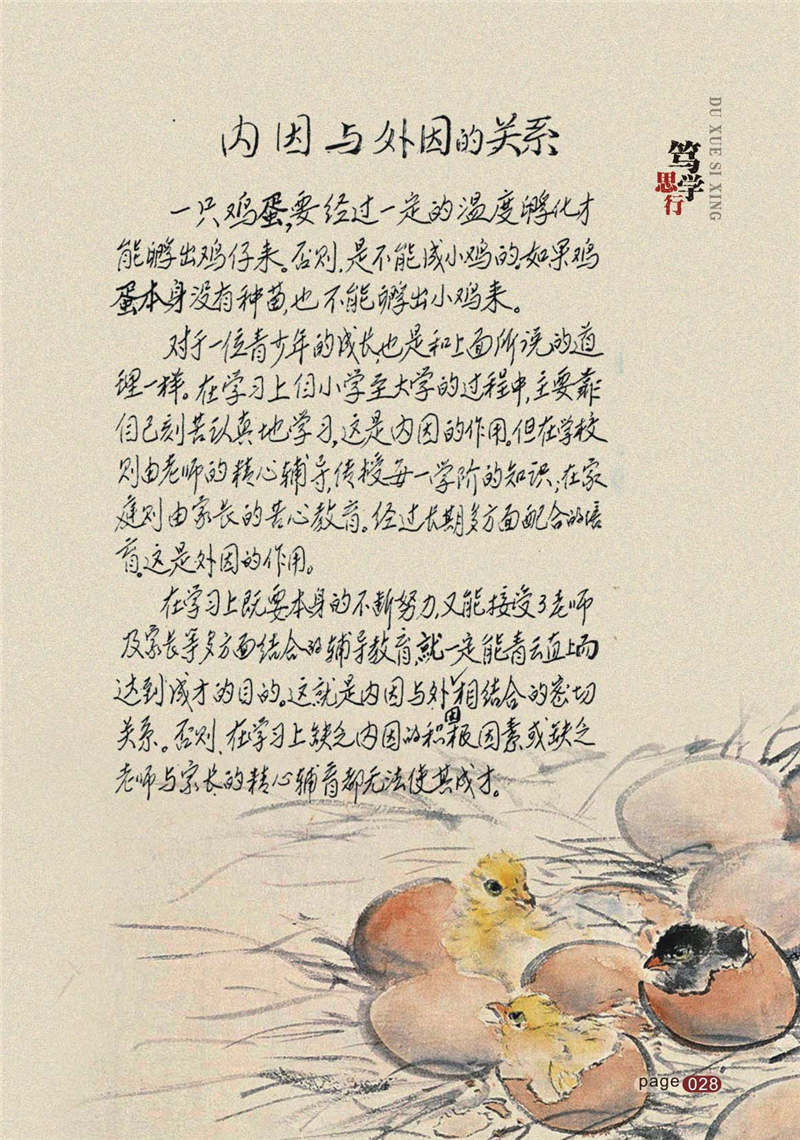 内因与外因的关系
DU XUE SI XING
笃学
思行
一只鸡蛋,要经过一定的温度孵化才
能孵出鸡仔来。否则,是不能成小鸡的。如果鸡
蛋本身没有种苗,也不能孵出小鸡来。
对于一位青少年的成长,也是和上面所说的道
理一样。在学习上自小学至大学的过程中,主要靠
自己刻苦认真地学习,这是内因的作用。但在学校
则由老师的精心辅导,传授每一学阶的知识;在家
庭则由家长的苦心教育。经过长期多方面配合的培
育。这是外因的作用。
在学习上既要本身的不断努力,又能接受了老师
及家长等多方面结合的辅导教育,就一定能青云直上而
达到成才的目的。这就是内因与外因相结合的密切
关系。否则,在学习上缺乏内因的积极因素或缺乏
老师与家长的精心辅育都无法使其成才。
page 028